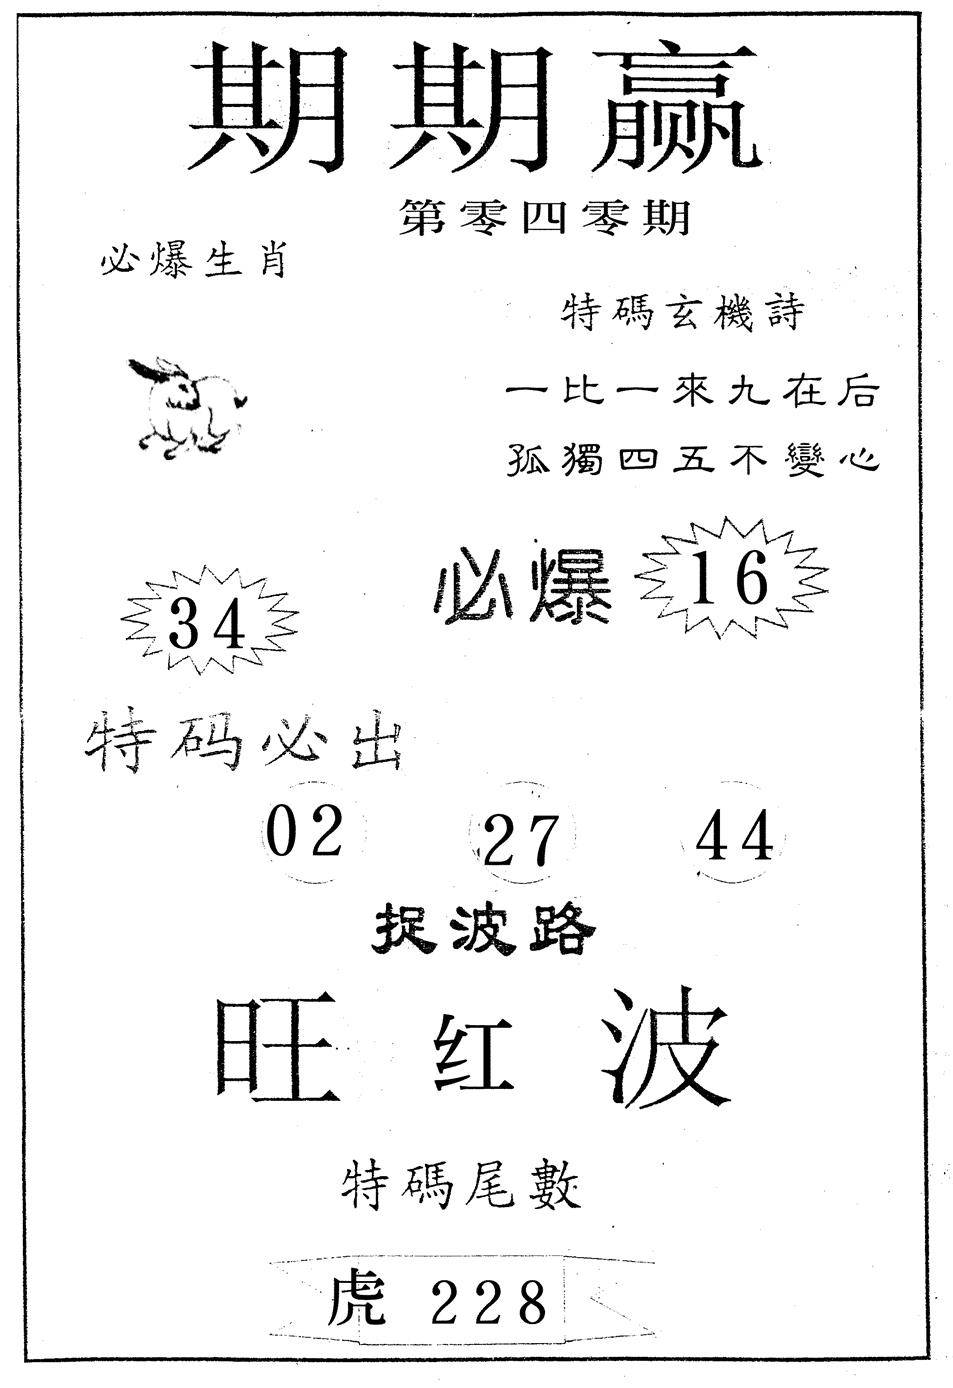 期期赢
第零四零期
必爆生肖
特碼玄機詩
一比一來九在后
孤獨四五不變心
必爆 16
34
特码必出
02 27 44
捉波路
旺红波
特碼尾數
虎 228